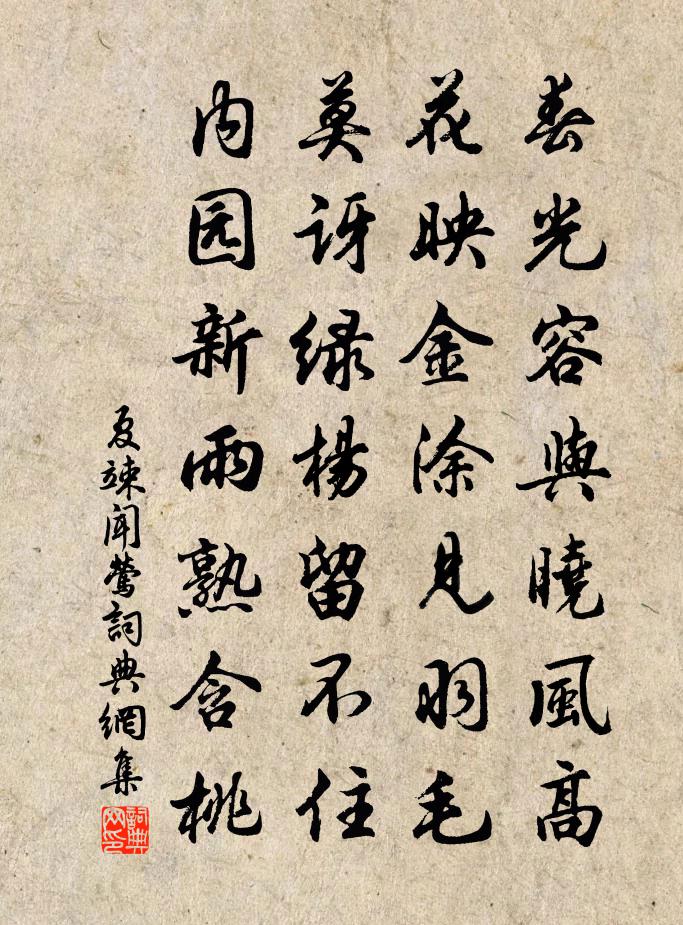 春光容與曉風高
花映金涂見羽毛
莫訝緑楊留不住
内园新雨熟含桃
夏竦聞鶯詞典網集
詞典网印